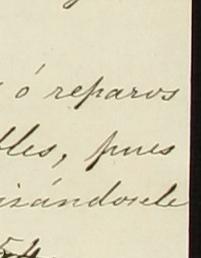 ó reparos
bles, pues
isándosele
54.